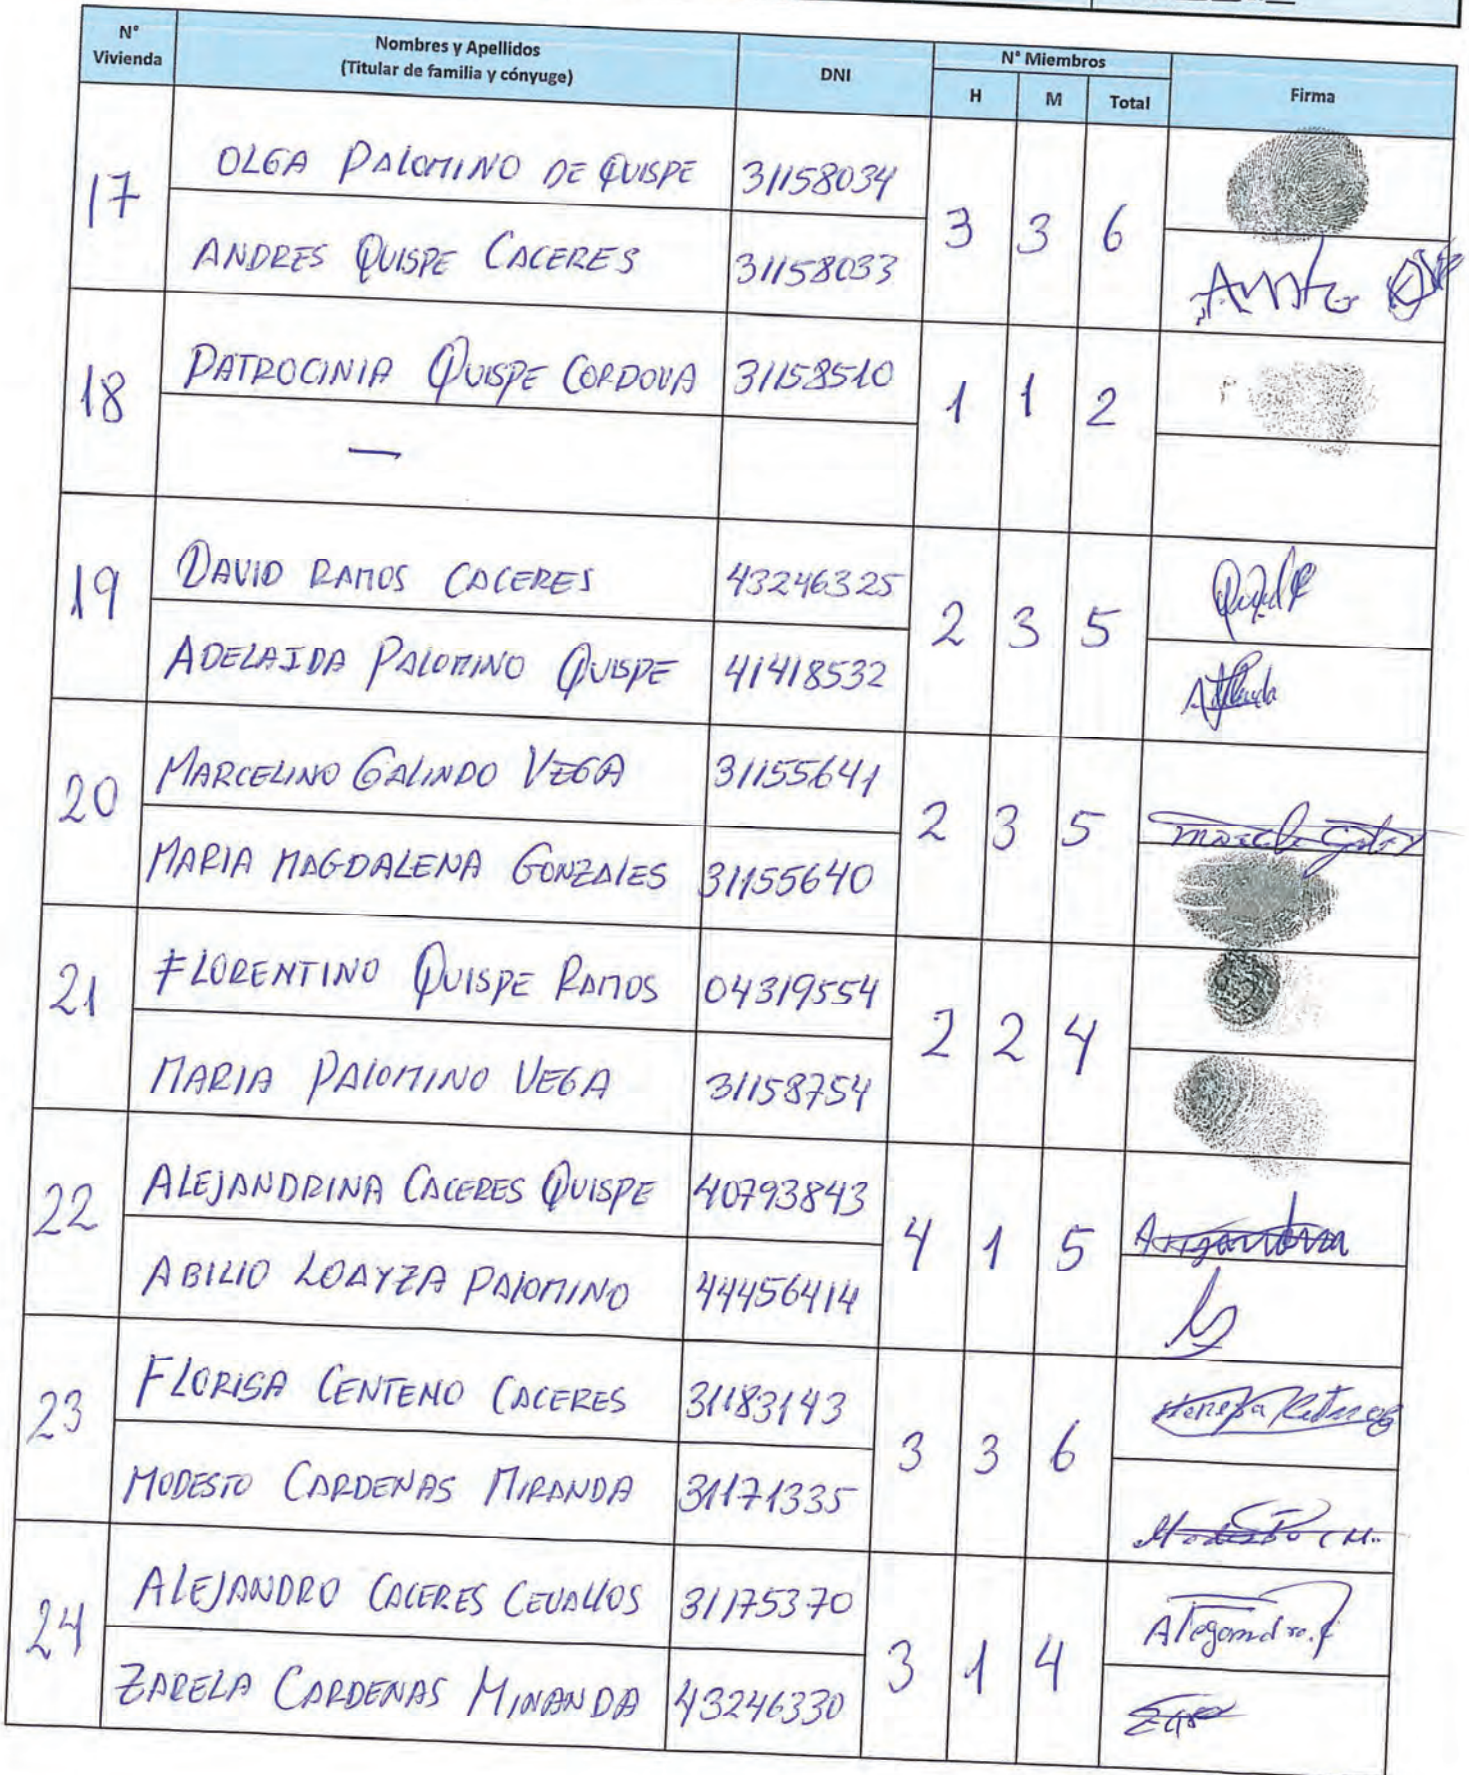 N° Vivienda Nombres y Apellidos (Titular de familia y cónyuge) DNI N° Miembros H M Total Firma
17 OLGA PALOMINO DE QUISPE 31158034 3 3 6
ANDRES QUISPE CACERES 31158033
18 PATROCINIA QUISPE CORDOVA 31158510 1 1 2
—
19 DAVID RAMOS CACERES 43246325 2 3 5
ADELAIDA PALOMINO QUISPE 41418532
20 MARCELINO GALINDO VEGA 31155641 2 3 5
MARIA MAGDALENA GONZALES 31155640
21 FLORENTINO QUISPE RAMOS 04319554 2 2 4
MARIA PALOMINO VEGA 31158754
22 ALEJANDRINA CACERES QUISPE 40793843 4 1 5
ABILIO LOAYZA PALOMINO 44456414
23 FLORISA CENTENO CACERES 31183143 3 3 6
MODESTO CARDENAS MIRANDA 31171335 Modesto C M.
24 ALEJANDRO CACERES CEVALLOS 31175370 3 1 4 Alegandro.
ZARELA CARDENAS MINANDA 43246330